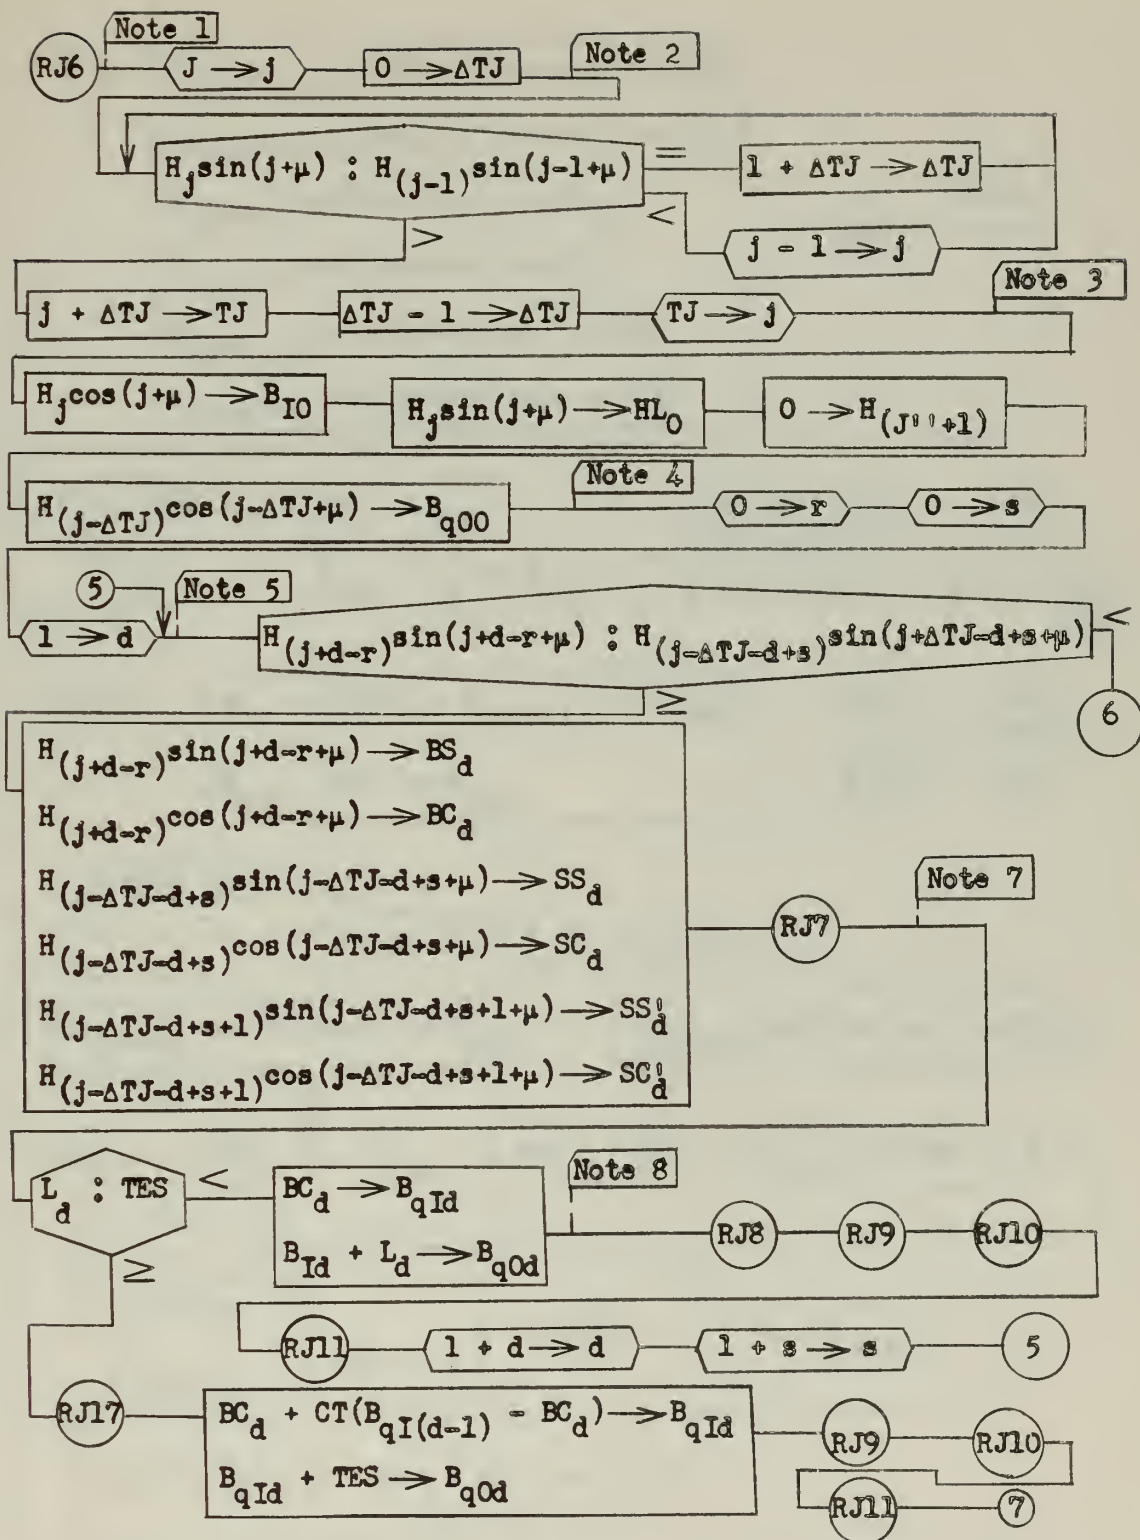 Note 1
RJ6
J → j
0 → ΔTJ
Note 2
H_j sin(j+μ) : H_(j-1) sin(j-1+μ)
=
1 + ΔTJ → ΔTJ
<
j - 1 → j
>
Note 3
j + ΔTJ → TJ
ΔTJ - 1 → ΔTJ
TJ → j
H_j cos(j+μ) → B_IO
H_j sin(j+μ) → HL_O
0 → H_(J''+1)
Note 4
H_(j-ΔTJ) cos(j-ΔTJ+μ) → B_qOO
0 → r
0 → s
5
Note 5
1 → d
H_(j+d-r) sin(j+d-r+μ) : H_(j-ΔTJ-d+s) sin(j+ΔTJ-d+s+μ)
<
≥
6
H_(j+d-r) sin(j+d-r+μ) → BS_d
H_(j+d-r) cos(j+d-r+μ) → BC_d
H_(j-ΔTJ-d+s) sin(j-ΔTJ-d+s+μ) → SS_d
H_(j-ΔTJ-d+s) cos(j-ΔTJ-d+s+μ) → SC_d
H_(j-ΔTJ-d+s+1) sin(j-ΔTJ-d+s+1+μ) → SS'_d
H_(j-ΔTJ-d+s+1) cos(j-ΔTJ-d+s+1+μ) → SC'_d
RJ7
Note 7
L_d : TES
<
≥
BC_d → B_qId
B_Id + L_d → B_qOd
Note 8
RJ8
RJ9
RJ10
RJ11
1 + d → d
1 + s → s
5
RJ17
BC_d + CT(B_qI(d-1) - BC_d) → B_qId
B_qId + TES → B_qOd
RJ9
RJ10
RJ11
7